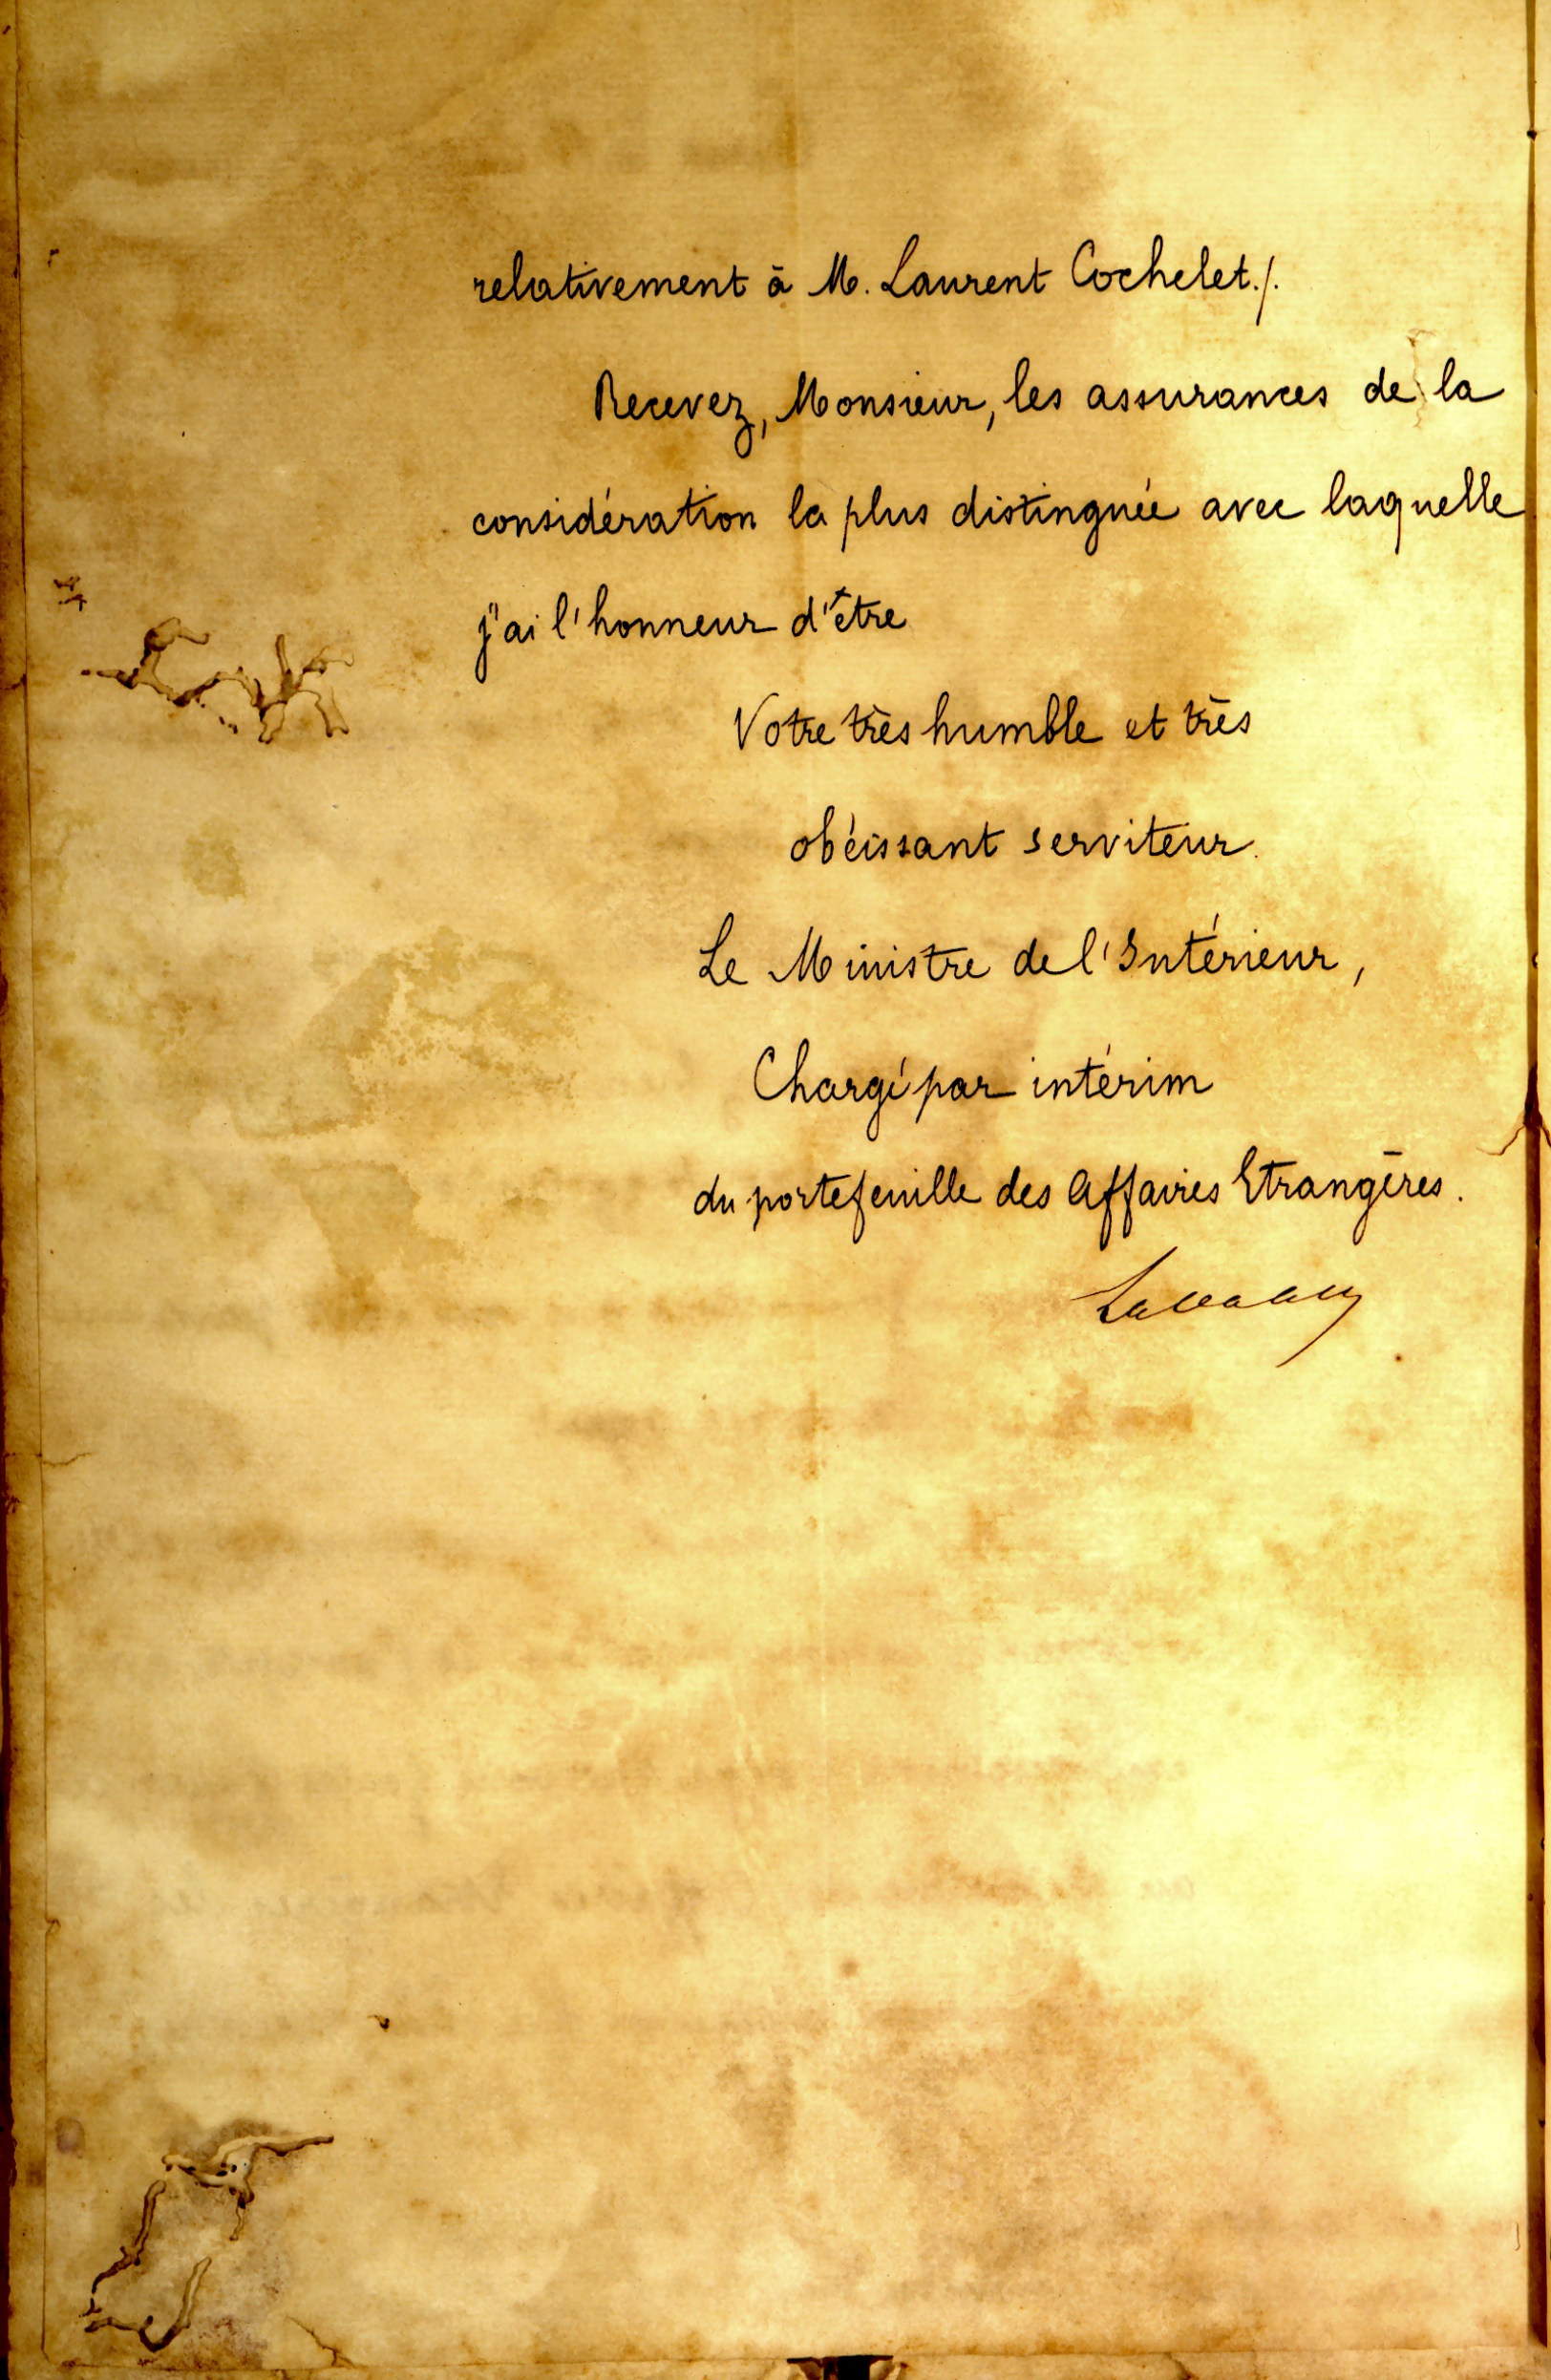 relativement à M. Laurent Cochelet./.
Recevez, Monsieur, les assurances de la
considération la plus distinguée avec laquelle
j'ai l'honneur d'être
Votre très humble et très
obéissant serviteur.
Le Ministre de l'Intérieur,
Chargé par intérim
du portefeuille des Affaires Etrangères.